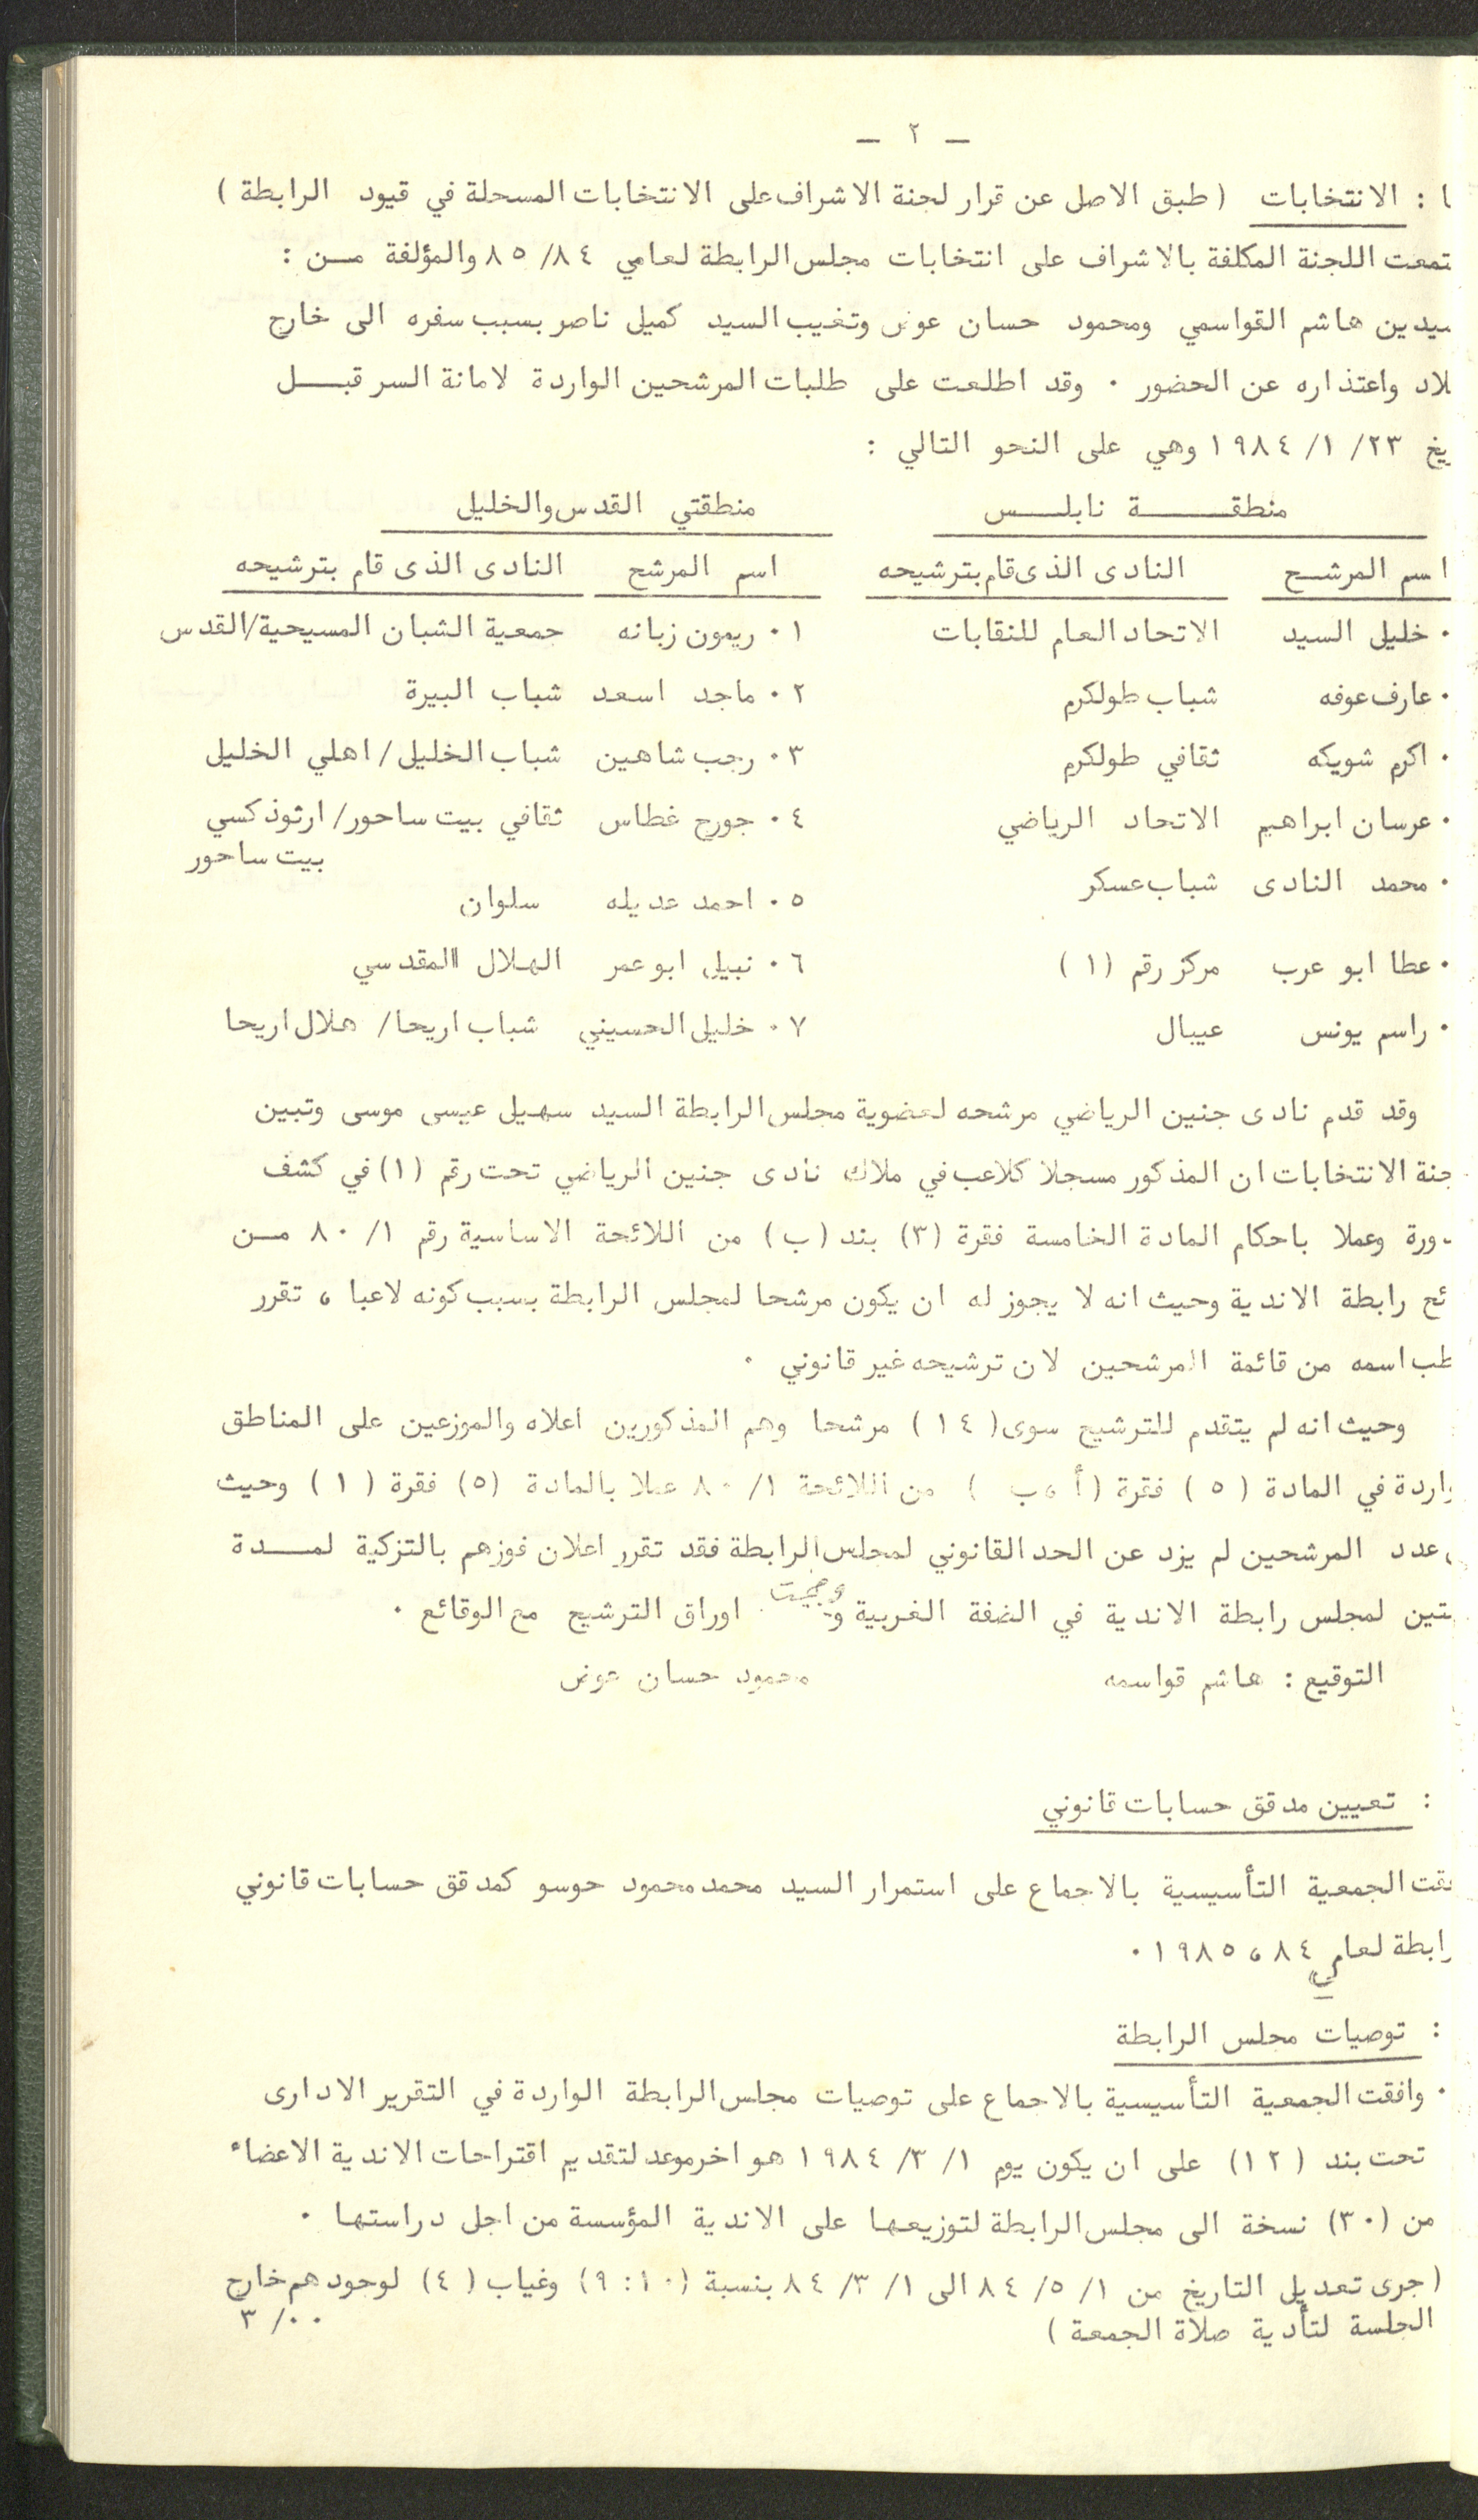 — ٢ —
ا : الانتخابات ( طبق الاصل عن قرار لجنة الاشراف على الانتخابات المسجلة في قيود الرابطة )
تمعت اللجنة المكلفة بالاشراف على انتخابات مجلس الرابطة لعامي ٨٥/٨٤ والمؤلفة مــن :
سيدين هاشم القواسمي ومحمود حسان عوض وتغيب السيد كميل ناصر بسبب سفره الى خارج
لاد واعتذاره عن الحضور ٠ وقد اطلعت على طلبات المرشحين الواردة لامانة السر قبــــل
يخ ١٩٨٤/١/٢٣ وهي على النحو التالي :
منطقــــــة نابلـــس منطقتي القدس والخليل
اسم المرشــح النادى الذى قام بترشيحه اسم المرشح النادى الذى قام بترشيحه
٠ خليل السيد الاتحاد العام للنقابات ١٠ ريمون زبانه جمعية الشبان المسيحية/القدس
٠ عارف عوفه شباب طولكرم ٢٠ ماجد اسعد شباب البيرة
٠ اكرم شويكه ثقافي طولكرم ٣٠ رجب شاهين شباب الخليل/ اهلي الخليل
٠ عرسان ابراهيم الاتحاد الرياضي ٤٠ جورج غطاس ثقافي بيت ساحور/ ارثوذكسي
بيت ساحور
٠ محمد النادى شباب عسكر ٥٠ احمد عديله سلوان
٠ عطا ابو عرب مركز رقم (١) ٦٠ نبيل ابو عمر الهلال المقدسي
٠ راسم يونس عيبال ٧٠ خليل الحسيني شباب اريحا/ هلال اريحا
وقد قدم نادى جنين الرياضي مرشحه لعضوية مجلس الرابطة السيد سهيل عيسى موسى وتبين
جنة الانتخابات ان المذكور مسجلا كلاعب في ملاك نادى جنين الرياضي تحت رقم (١) في كشف
ورة وعملا باحكام المادة الخامسة فقرة (٣) بند (ب) من اللائحة الاساسية رقم ٨٠/١ مــن
ئح رابطة الاندية وحيث انه لا يجوز له ان يكون مرشحا لمجلس الرابطة بسبب كونه لاعبا ، تقرر
طب اسمه من قائمة المرشحين لان ترشيحه غير قانوني ٠
وحيث انه لم يتقدم للترشيح سوى (١٤) مرشحا وهم المذكورين اعلاه والموزعين على المناطق
واردة في المادة (٥) فقرة (أ ، ب ) من اللائحة ٨٠/١ عملا بالمادة (٥) فقرة (١) وحيث
عدد المرشحين لم يزد عن الحد القانوني لمجلس الرابطة فقد تقرر اعلان فوزهم بالتزكية لمــــدة
ستين لمجلس رابطة الاندية في الضفة الغربية و اوراق الترشيح مع الوقائع ٠
التوقيع : هاشم قواسمه محمود حسان عوض
: تعيين مدقق حسابات قانوني
فقت الجمعية التأسيسية بالاجماع على استمرار السيد محمد محمود حوسو كمدقق حسابات قانوني
رابطة لعامي ٨٤ ، ١٩٨٥ ٠
: توصيات مجلس الرابطة
٠ وافقت الجمعية التأسيسية بالاجماع على توصيات مجلس الرابطة الواردة في التقرير الادارى
تحت بند (١٢) على ان يكون يوم ١٩٨٤/٣/١ هو اخر موعد لتقديم اقتراحات الاندية الاعضاء
من (٣٠) نسخة الى مجلس الرابطة لتوزيعها على الاندية المؤسسة من اجل دراستها ٠
( جرى تعديل التاريخ من ٨٤/٥/١ الى ٨٤/٣/١ بنسبة (٩:١٠) وغياب (٤) لوجودهم خارج
الجلسة لتأدية صلاة الجمعة ) ٣/٠٠